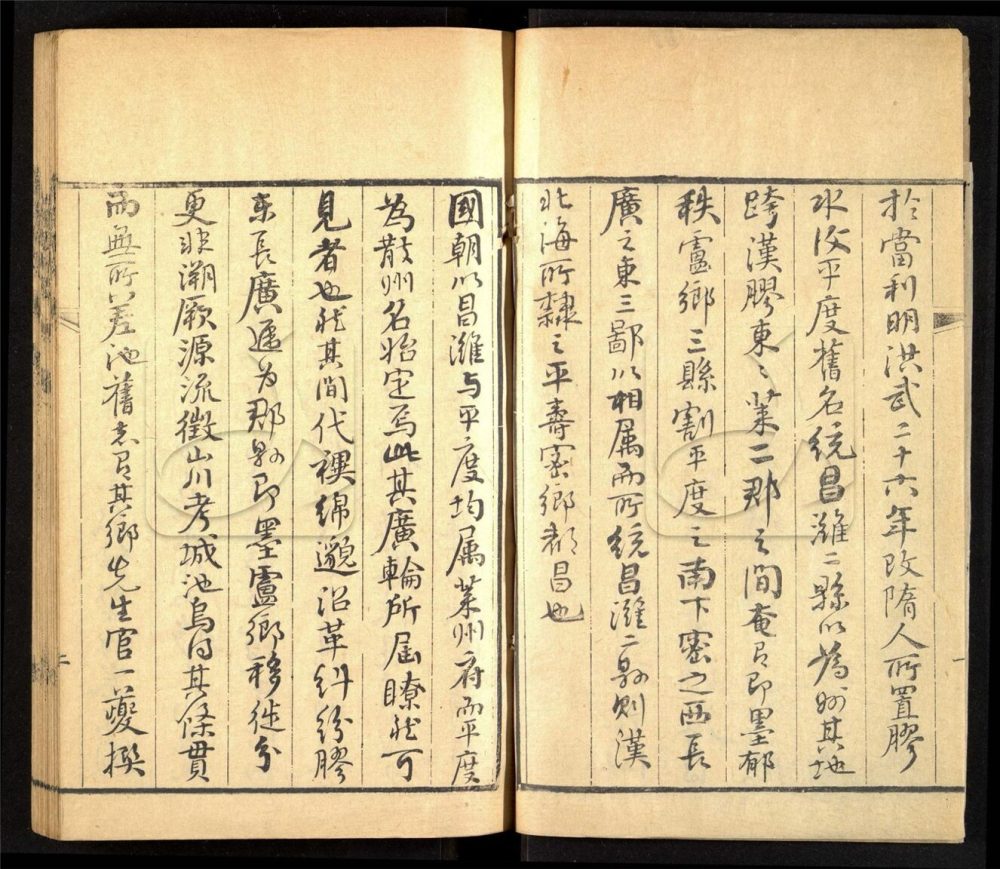 於當利明洪武二十六年改隋人所置膠
水設平度舊名統昌濰二縣以為州其地
跨漢膠東之萊二郡之間奄有即墨郁
秩盧鄉三縣割平度之南下密之西長
廣之東三鄙以相属而所統昌濰二縣則漢
北海所隸之平壽密鄉都昌也
國朝以昌濰与平度均属萊州府而平度
為散州名始定焉此其廣輪所屆瞭然可
見者也然其間代禩綿邈沿革糾紛膠
東長廣遞为郡縣即墨盧鄉移徙分
更非溯厥源流徵山川考城池烏得其條貫
而無所差池舊志有其鄉先生官一夔撰